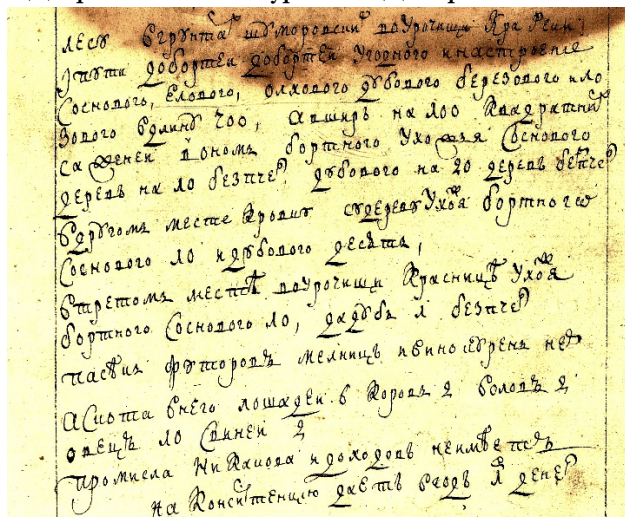 лесу вгрунта шуморовски поурочищи Кра
пути добортеи добортеи угорного инастроение
Сосноваго, Елового, олхового дубового березового ило
зового вдлину 700, авширь на 100 Квадратни
саженеи вономъ бортного Ухожя Соснового
деревъ на 10 безпче, дубового на 20 деревъ безпче
вдругомъ месте Кровшу сдереву Ухожя бортного
Соснового 10 идубового десять,
втретомъ месте поурочищи Красницъ Ухожя
бортного Соснового 10, дадубъ безпче
пасекъ футоровъ мелницъ ивинокурень нет
аСкота внего лошадеи 6 Коровъ 2 воловъ 2
овецъ 10 Свинеи 2
промисла Никакова идоходовъ неимеетъ
на Консистенцию даетъ вгодъ денег